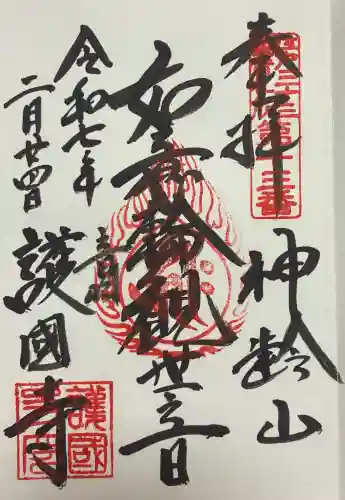 第十三番
奉拝
神齢山
如意輪観世音
音羽
護國寺
令和七年
二月廿四日
護國